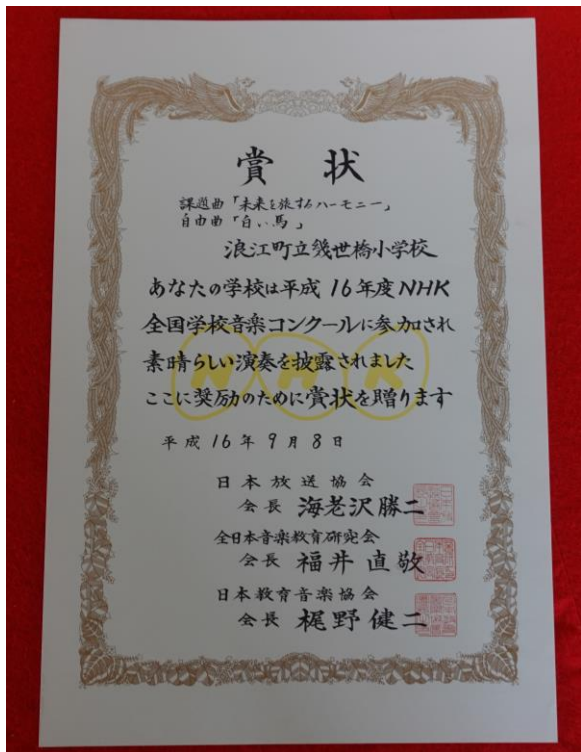 賞状
課題曲「未来を旅するハーモニー」
自由曲「白い馬」
浪江町立幾世橋小学校
あなたの学校は平成16年度NHK
全国学校音楽コンクールに参加され
素晴らしい演奏を披露されました
ここに奨励のために賞状を贈ります
NHK
平成16年9月8日
日本放送協会
会長 海老沢勝二
全日本音楽教育研究会
会長 福井直敬
日本教育音楽協会
会長 梶野健二